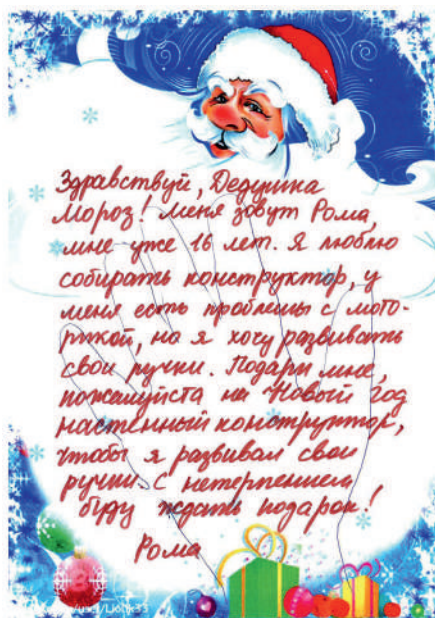 Здравствуй, Дедушка
Мороз! Меня зовут Рома,
мне уже 16 лет. Я люблю
собирать конструктор, у
меня есть проблемы с мото-
рикой, но я хочу развивать
свои ручки. Подари мне,
пожалуйста на Новый год
настенный конструктор,
чтобы я развивал свои
ручки. С нетерпением
буду ждать подарок!
Рома